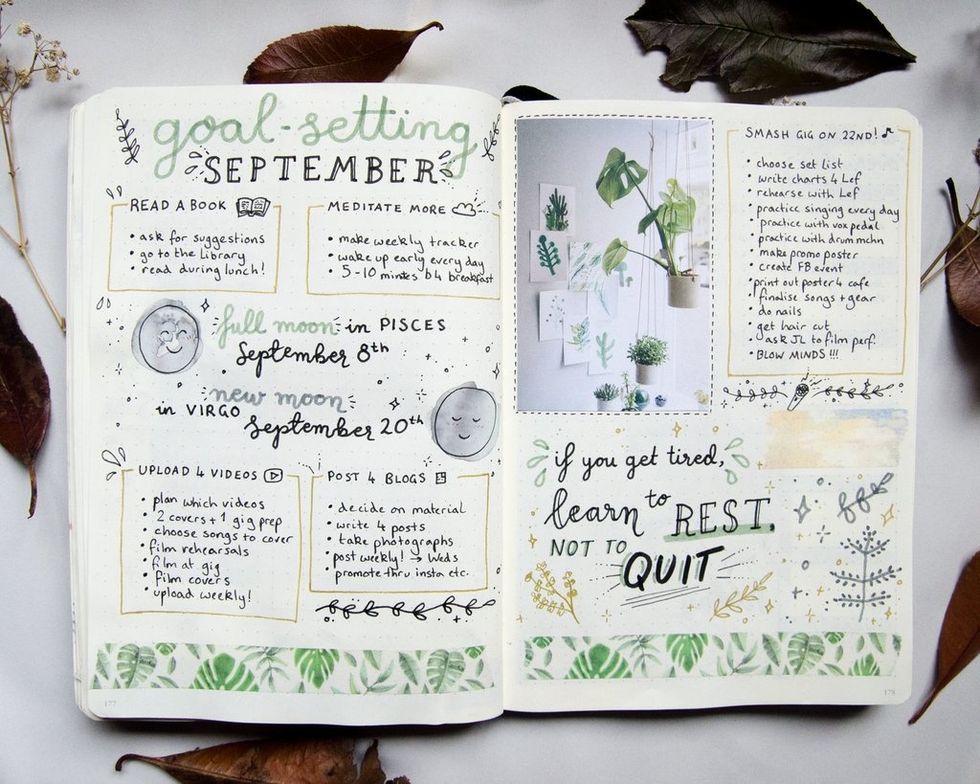 goal-setting
SEPTEMBER
READ A BOOK
• ask for suggestions
• go to the Library
• read during lunch!
MEDITATE MORE
• make weekly tracker
• wake up early every day
• 5-10 mintes b4 breakfast
full moon in PISCES
September 8th
new moon
in VIRGO
September 20th
UPLOAD 4 VIDEOS
• plan which videos
• 2 covers + 1 gig prep
• choose songs to cover
• film rehearsals
• film at gig
• film covers
• upload weekly!
POST 4 BLOGS
• decide on material
• write 4 posts
• take photographs
• post weekly! → Weds
• promote thru insta etc.
177
SMASH GIG ON 22ND!
• choose set list
• write charts 4 Lef
• rehearse with Lef
• practice singing every day
• practice with vox pedal
• practice with drum mchn
• make promo poster
• create FB event
• print out poster 4 cafe
• finalise songs + gear
• do nails
• get hair cut
• ask JL to film perf.
• BLOW MINDS !!!
if you get tired,
learn to REST,
NOT TO
QUIT
178